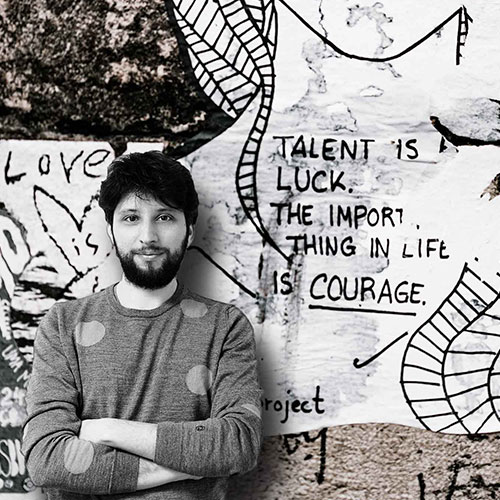 LOVE
is
TALENT IS
LUCK.
THE IMPORT
THING IN LIFE
IS COURAGE.
roject